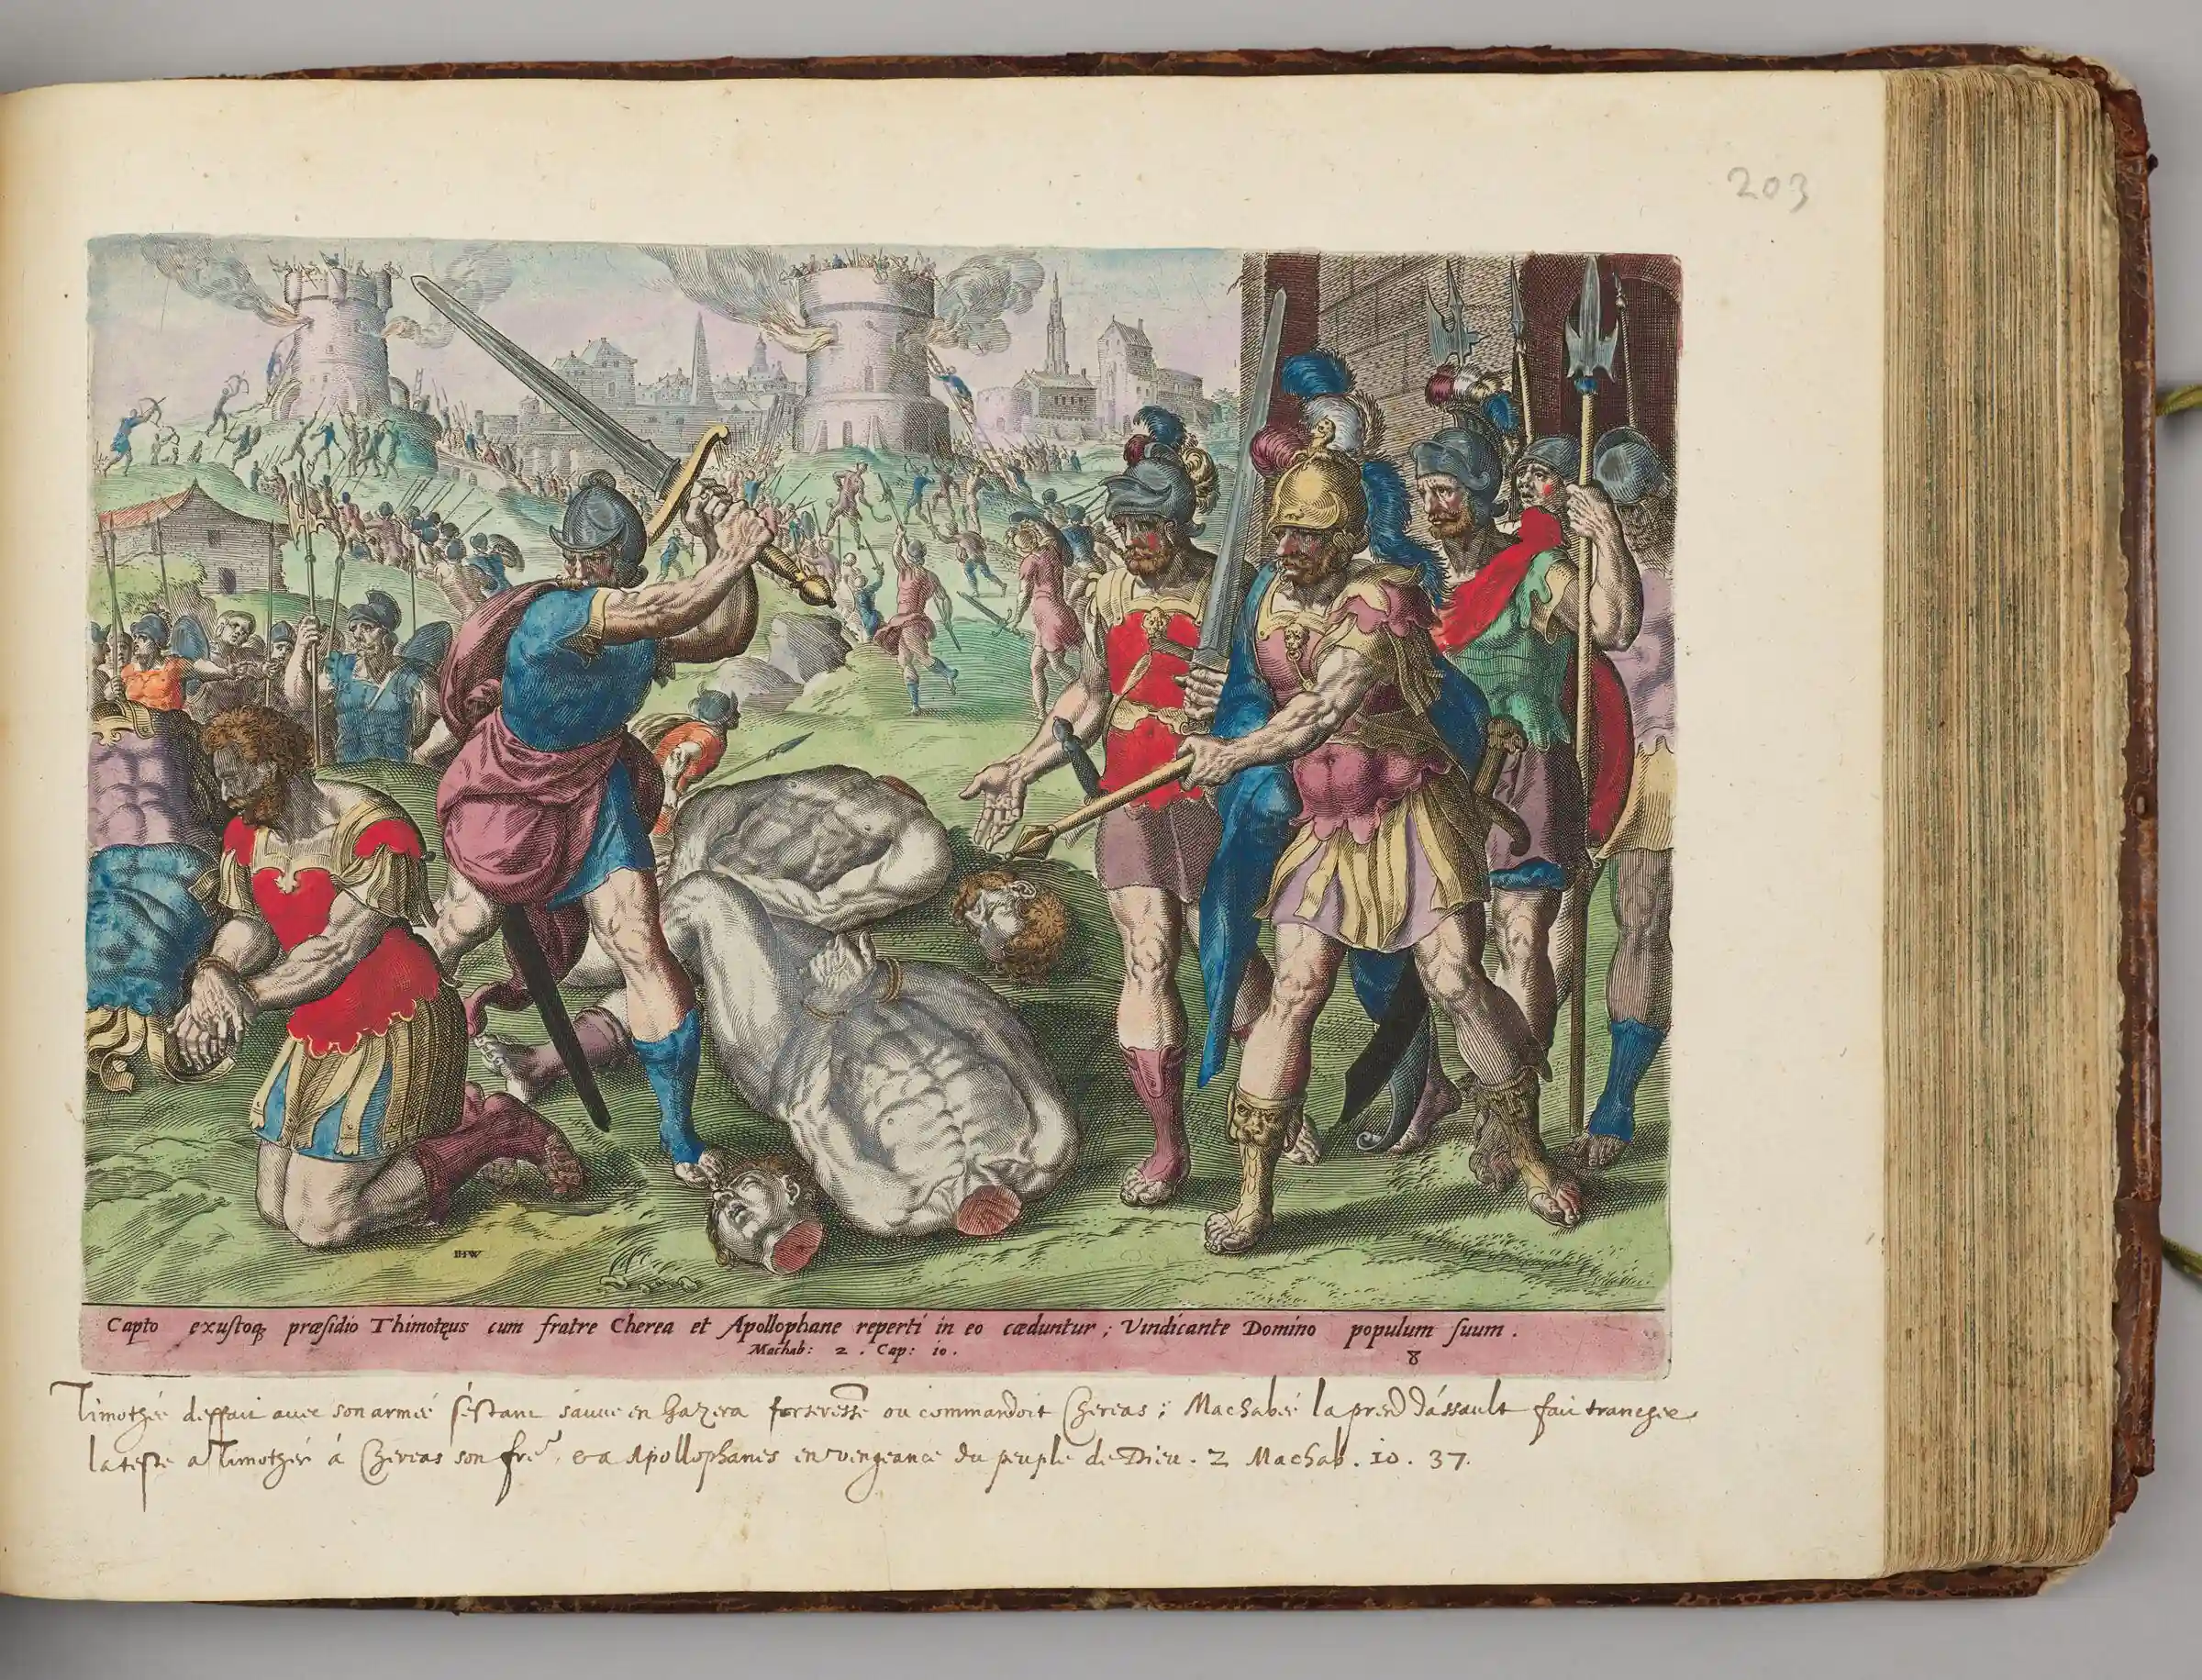 203
IHW
Capto exustoq; præsidio Thimotęus cum fratre Cherea et Apollophane reperti in eo cæduntur; Vindicante Domino populum suum.
Machab: 2. Cap: 10.
8
Timothée deffait avec son armée s'estant sauvé en Gazera forteresse ou commandoit Chereas; Machabée la prend d'assault fait trancher
la teste a Timothée á Chereas son fre, et a Apollophanes en vengeance du peuple de Dieu. 2 Machab. 10. 37.